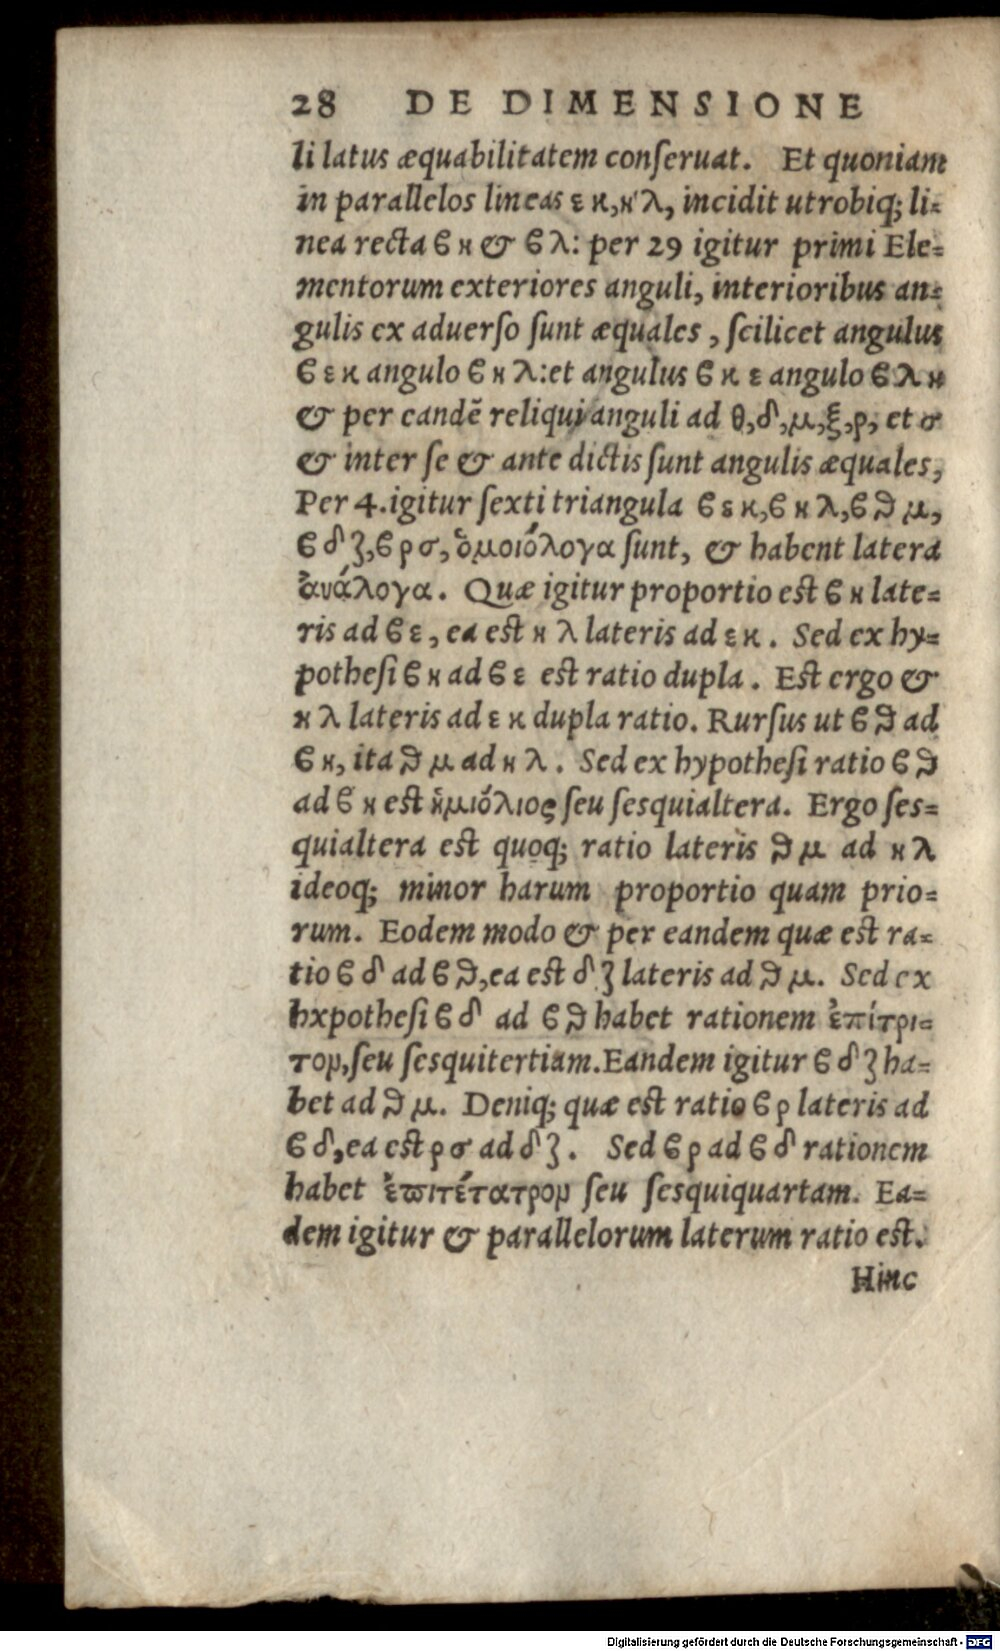 28 DE DIMENSIONE
li latus æquabilitatem conſeruat. Et quoniam
in parallelos lineas ε κ, η λ, incidit utrobiq; li=
nea recta ϐ η & ϐ λ: per 29 igitur primi Ele=
mentorum exteriores anguli, interioribus an=
gulis ex aduerſo ſunt æquales, ſcilicet angulus
ϐ ε κ angulo ϐ η λ: et angulus ϐ κ ε angulo ϐ λ η
& per eandē reliqui anguli ad θ, δ, μ, ξ, ρ, et σ
& inter ſe & ante dictis ſunt angulis æquales,
Per 4. igitur ſexti triangula ϐ ε κ, ϐ η λ, ϐ ϑ μ,
ϐ δ ξ, ϐ ρ σ, ὁμοιόλογα ſunt, & habent latera
ἀνάλογα. Quæ igitur proportio eſt ϐ η late=
ris ad ϐ ε, ea eſt η λ lateris ad ε κ. Sed ex hy=
potheſi ϐ η ad ϐ ε eſt ratio dupla. Eſt ergo &
η λ lateris ad ε κ dupla ratio. Rurſus ut ϐ ϑ ad
ϐ η, ita ϑ μ ad η λ. Sed ex hypotheſi ratio ϐ ϑ
ad ϐ η eſt ἡμιόλιος ſeu ſesquialtera. Ergo ſes=
quialtera eſt quoq; ratio lateris ϑ μ ad η λ
ideoq; minor harum proportio quam prio=
rum. Eodem modo & per eandem quæ eſt ra=
tio ϐ δ ad ϐ ϑ, ea eſt δ ξ lateris ad ϑ μ. Sed ex
hxpotheſi ϐ δ ad ϐ ϑ habet rationem ἐπίτρι=
τον, ſeu ſesquitertiam. Eandem igitur ϐ δ ξ ha=
bet ad ϑ μ. Deniq; quæ eſt ratio ϐ ρ lateris ad
ϐ δ, ea eſt ρ σ ad δ ξ. Sed ϐ ρ ad ϐ δ rationem
habet ἐπιτέτατρον ſeu ſesquiquartam. Ea=
dem igitur & parallelorum laterum ratio eſt.
Hinc
Digitalisierung gefördert durch die Deutsche Forschungsgemeinschaft - DFG